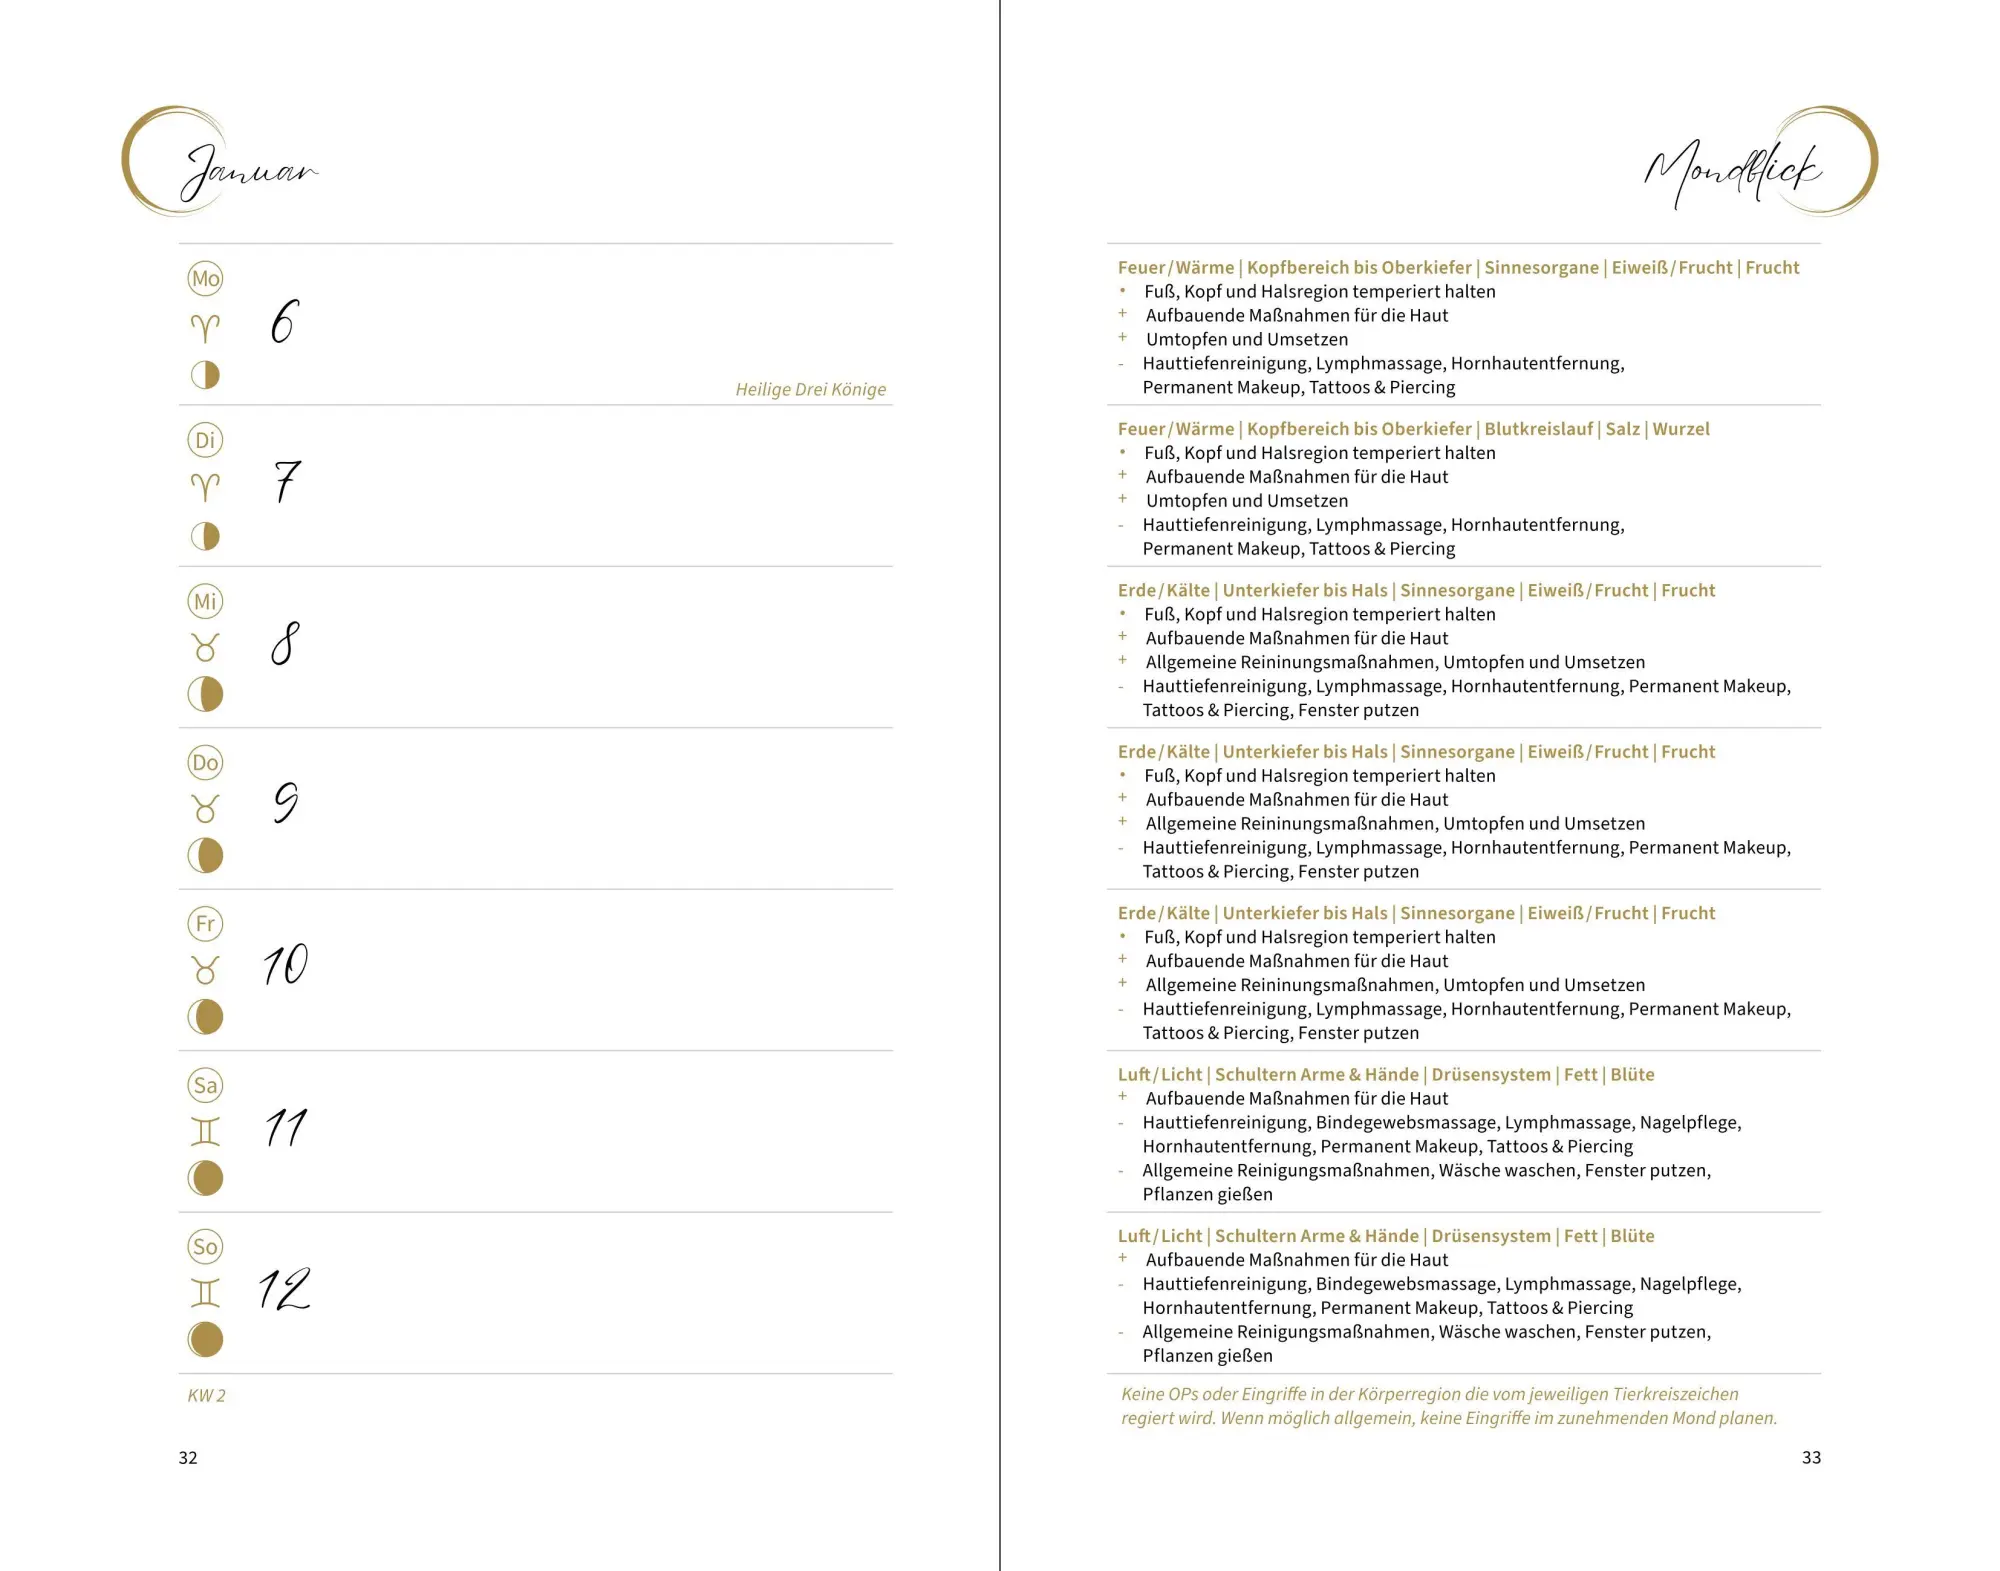 Januar
Mo
6
Heilige Drei Könige
Di
7
Mi
8
Do
9
Fr
10
Sa
11
So
12
KW 2
32
Mondblick
Feuer/Wärme | Kopfbereich bis Oberkiefer | Sinnesorgane | Eiweiß/Frucht | Frucht
• Fuß, Kopf und Halsregion temperiert halten
+ Aufbauende Maßnahmen für die Haut
+ Umtopfen und Umsetzen
- Hauttiefenreinigung, Lymphmassage, Hornhautentfernung,
Permanent Makeup, Tattoos & Piercing
Feuer/Wärme | Kopfbereich bis Oberkiefer | Blutkreislauf | Salz | Wurzel
• Fuß, Kopf und Halsregion temperiert halten
+ Aufbauende Maßnahmen für die Haut
+ Umtopfen und Umsetzen
- Hauttiefenreinigung, Lymphmassage, Hornhautentfernung,
Permanent Makeup, Tattoos & Piercing
Erde/Kälte | Unterkiefer bis Hals | Sinnesorgane | Eiweiß/Frucht | Frucht
• Fuß, Kopf und Halsregion temperiert halten
+ Aufbauende Maßnahmen für die Haut
+ Allgemeine Reininungsmaßnahmen, Umtopfen und Umsetzen
- Hauttiefenreinigung, Lymphmassage, Hornhautentfernung, Permanent Makeup,
Tattoos & Piercing, Fenster putzen
Erde/Kälte | Unterkiefer bis Hals | Sinnesorgane | Eiweiß/Frucht | Frucht
• Fuß, Kopf und Halsregion temperiert halten
+ Aufbauende Maßnahmen für die Haut
+ Allgemeine Reininungsmaßnahmen, Umtopfen und Umsetzen
- Hauttiefenreinigung, Lymphmassage, Hornhautentfernung, Permanent Makeup,
Tattoos & Piercing, Fenster putzen
Erde/Kälte | Unterkiefer bis Hals | Sinnesorgane | Eiweiß/Frucht | Frucht
• Fuß, Kopf und Halsregion temperiert halten
+ Aufbauende Maßnahmen für die Haut
+ Allgemeine Reininungsmaßnahmen, Umtopfen und Umsetzen
- Hauttiefenreinigung, Lymphmassage, Hornhautentfernung, Permanent Makeup,
Tattoos & Piercing, Fenster putzen
Luft/Licht | Schultern Arme & Hände | Drüsensystem | Fett | Blüte
+ Aufbauende Maßnahmen für die Haut
- Hauttiefenreinigung, Bindegewebsmassage, Lymphmassage, Nagelpflege,
Hornhautentfernung, Permanent Makeup, Tattoos & Piercing
- Allgemeine Reinigungsmaßnahmen, Wäsche waschen, Fenster putzen,
Pflanzen gießen
Luft/Licht | Schultern Arme & Hände | Drüsensystem | Fett | Blüte
+ Aufbauende Maßnahmen für die Haut
- Hauttiefenreinigung, Bindegewebsmassage, Lymphmassage, Nagelpflege,
Hornhautentfernung, Permanent Makeup, Tattoos & Piercing
- Allgemeine Reinigungsmaßnahmen, Wäsche waschen, Fenster putzen,
Pflanzen gießen
Keine OPs oder Eingriffe in der Körperregion die vom jeweiligen Tierkreiszeichen
regiert wird. Wenn möglich allgemein, keine Eingriffe im zunehmenden Mond planen.
33